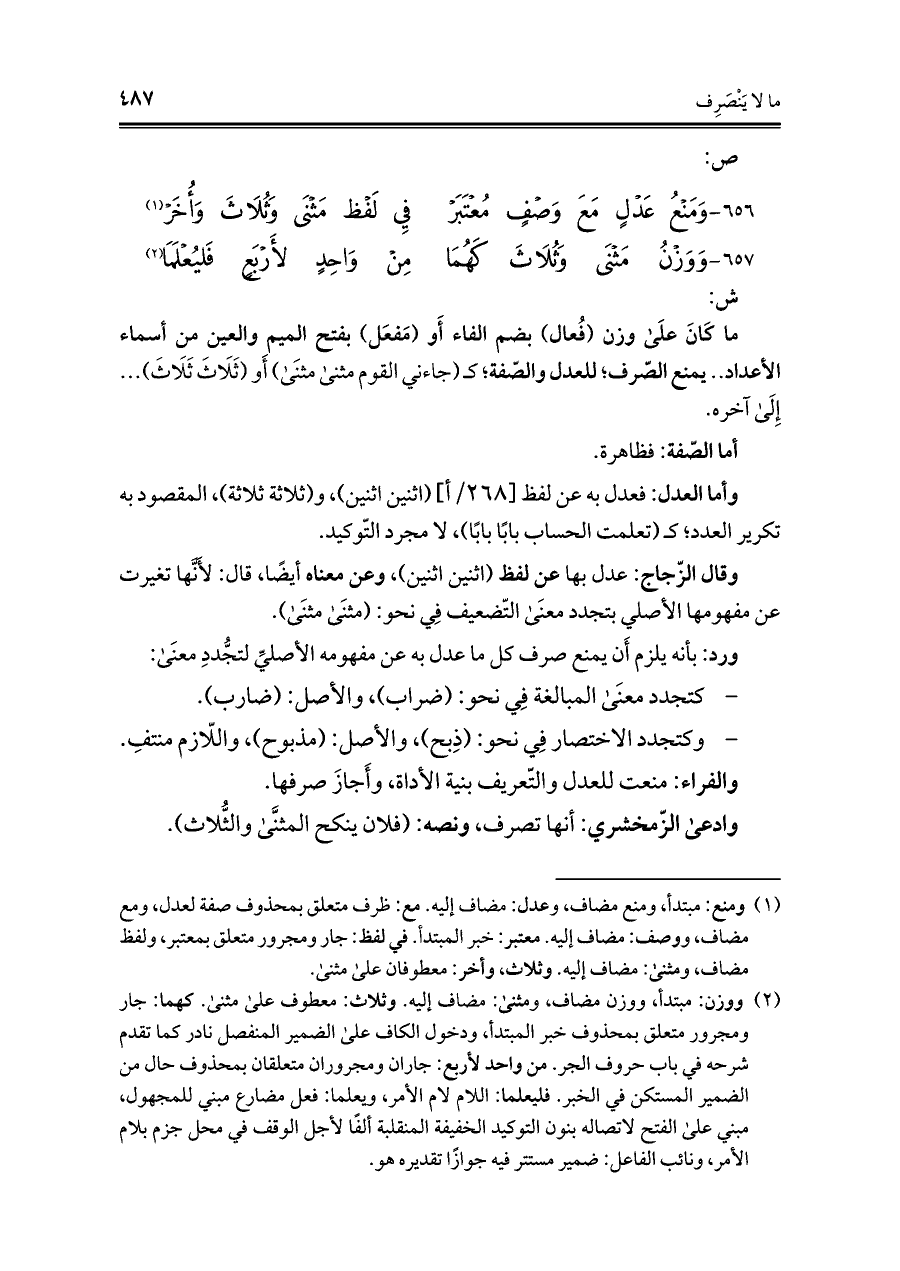 ما لا يَنْصَرِف ٤٨٧
ص:
٦٥٦-وَمَنْعُ عَدْلٍ مَعَ وَصْفٍ مُعْتَبَرْ فِي لَفْظِ مَثْنَى وَثُلَاثَ وَأُخَرْ(١)
٦٥٧-وَوَزْنُ مَثْنَى وَثُلَاثَ كَهُمَا مِنْ وَاحِدٍ لأَرْبَعٍ فَليُعْلَمَا(٢)
ش:
ما كَانَ علَىٰ وزن (فُعال) بضم الفاء أَو (مَفعَل) بفتح الميم والعين من أسماء
الأعداد.. يمنع الصّرف؛ للعدل والصّفة؛ كـ (جاءني القوم مثنىٰ مثنَىٰ) أَو (ثَلَاثَ ثَلَاثَ)...
إِلَىٰ آخره.
أما الصّفة: فظاهرة.
وأما العدل: فعدل به عن لفظ [٢٦٨/ أ] (اثنين اثنين)، و(ثلاثة ثلاثة)، المقصود به
تكرير العدد؛ كـ (تعلمت الحساب بابًا بابًا)، لا مجرد التّوكيد.
وقال الزّجاج: عدل بها عن لفظ (اثنين اثنين)، وعن معناه أيضًا، قال: لأَنَّها تغيرت
عن مفهومها الأصلي بتجدد معنَىٰ التّضعيف فِي نحو: (مثنَىٰ مثنَىٰ).
ورد: بأنه يلزم أَن يمنع صرف كل ما عدل به عن مفهومه الأصليِّ لتجُّددِ معنَىٰ:
– كتجدد معنَىٰ المبالغة فِي نحو: (ضراب)، والأصل: (ضارب).
– وكتجدد الاختصار فِي نحو: (ذِبح)، والأصل: (مذبوح)، واللّازم منتفِ.
والفراء: منعت للعدل والتّعريف بنية الأداة، وأَجازَ صرفها.
وادعىٰ الزّمخشري: أنها تصرف، ونصه: (فلان ينكح المثنَّىٰ والثُّلاث).
(١) ومنع: مبتدأ، ومنع مضاف، وعدل: مضاف إليه. مع: ظرف متعلق بمحذوف صفة لعدل، ومع
مضاف، ووصف: مضاف إليه. معتبر: خبر المبتدأ. في لفظ: جار ومجرور متعلق بمعتبر، ولفظ
مضاف، ومثنىٰ: مضاف إليه. وثلاث، وأخر: معطوفان علىٰ مثنىٰ.
(٢) ووزن: مبتدأ، ووزن مضاف، ومثنىٰ: مضاف إليه. وثلاث: معطوف علىٰ مثنىٰ. كهما: جار
ومجرور متعلق بمحذوف خبر المبتدأ، ودخول الكاف علىٰ الضمير المنفصل نادر كما تقدم
شرحه في باب حروف الجر. من واحد لأربع: جاران ومجروران متعلقان بمحذوف حال من
الضمير المستكن في الخبر. فليعلما: اللام لام الأمر، ويعلما: فعل مضارع مبني للمجهول،
مبني علىٰ الفتح لاتصاله بنون التوكيد الخفيفة المنقلبة ألفًا لأجل الوقف في محل جزم بلام
الأمر، ونائب الفاعل: ضمير مستتر فيه جوازًا تقديره هو.